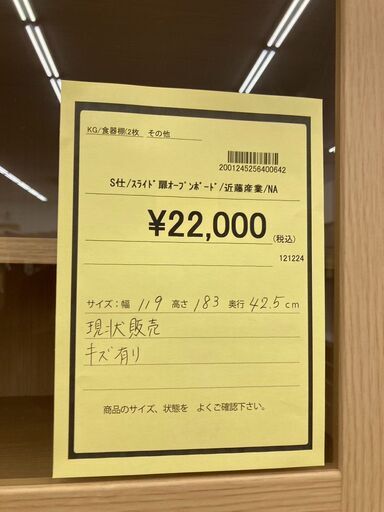 KG/食器棚(2枚 その他
2001245256400642
S仕/ｽﾗｲﾄﾞ扉ｵｰﾌﾟﾝﾎﾞｰﾄﾞ/近藤産業/NA
¥22,000(税込)
121224
サイズ:幅 119 高さ 183 奥行 42.5cm
現状販売
キズ有り
商品のサイズ、状態を よくご確認下さい。